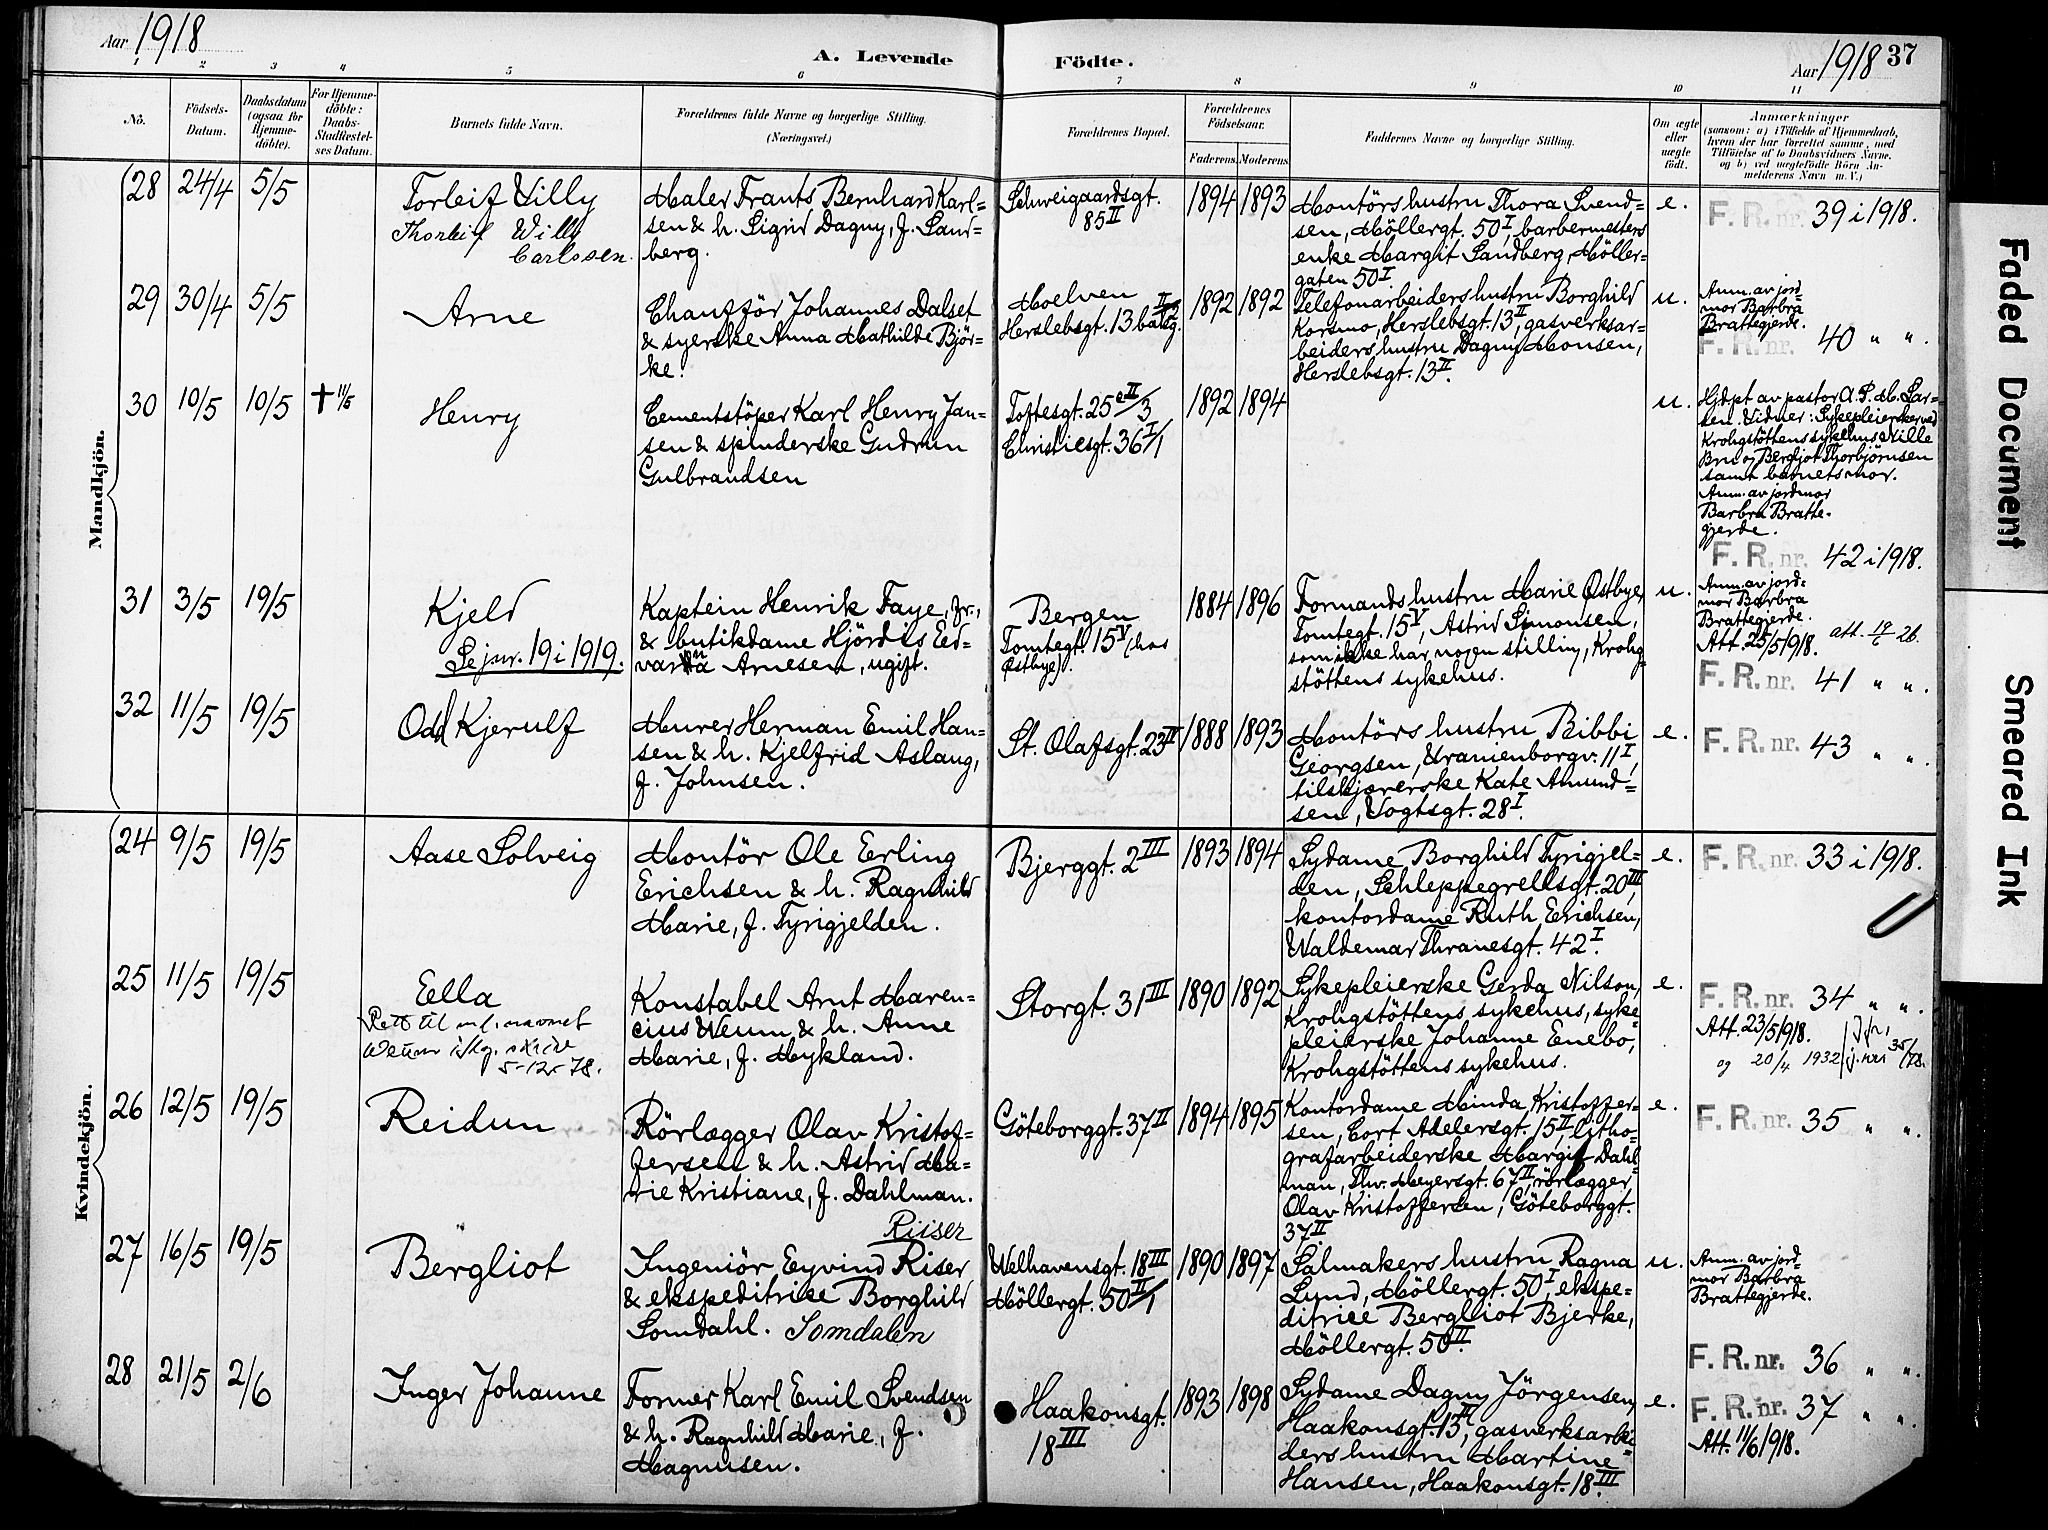 Aar 1918
A. Levende Födte.
Aar 1918 37
1 2 3 4 5 6 7 8 9 10 11
No.
Födsels-Datum.
Daabsdatum (ogsaa for Hjemme-döbte).
For Hjemme-döbte: Daabs-Stadfæstel-ses Datum.
Barnets fulde Navn.
Forældrenes fulde Navne og borgerlige Stilling. (Næringsvei.)
Forældrenes Bopæl.
Forældrenes Födselsaar.
Faderens. Moderens.
Faddernes Navne og borgerlige Stilling.
Om ægte eller uægte födt.
Anmærkninger
(saasom: a) i Tilfælde af Hjemmedaab, hvem der har forrettet samme, med Tilföielse af to Daabsvidners Navne. og b) ved uægtefödte Börn An-melderens Navn m. V.)
Mandkjön.
28 24/4 5/5
Torleif Villy
Thorleif Willy
Carlssen.
Maler Frants Bernhard Karl=
sen & h. Sigrid Dagny, f. Sand=
berg.
Schweigaardsgt.
85 II
1894 1893
Montörs hustru Thora Svend=
sen, Möllergt. 50 I, barbermesters
enke Margit Sandberg, Möller=
gaten 50 I.
e.
F. R. nr. 39 i 1918.
29 30/4 5/5
Arne
Chaufför Johannes Dalset
& syerske Anna Mathilde Björ=
ke.
Moelven
Herslebsgt. 13 II bakg.
1892 1892
Telefonarbeiders hustru Borghild
Korsmo, Herslebsgt. 13 II, gasverksar=
beiders hustru Dagny Monsen,
Herslebsgt. 13 II.
u.
Anm. av jord=
mor Barbra
Brattegjerde.
F. R. nr. 40 " ".
30 10/5 10/5 † 11/5
Henry
Cementstöper Karl Henry Jan=
sen & spinderske Gudrun
Gulbrandsen
Toftesgt. 25 e II/3
Christiesgt. 36 I/1
1892 1894
u.
Hjdpt av pastor A. P. M. Lar=
sen. Vidner: Sykepleierske ved
Krohgstöttens sykehus Nille
Bru og Bergljot Thorbjörnsen
samt barnets mor.
Anm. av jordmor
Barbra Bratte-
gjerde.
F. R. nr. 42 i 1918.
31 3/5 19/5
Kjeld
Se jnr. 19 i 1919.
Kaptein Henrik Faye, fr.,
& butikdame Hjördis Ed=
vardia Arnesen, ugift.
Bergen
Tomtegt. 15 V (hos
Østbye).
1884 1896
Formands hustru Marie Østbye,
Tomtegt. 15 V, Astrid Simonsen,
som ikke har nogen stilling, Krohg=
stöttens sykehus.
u.
Anm. av jord=
mor Barbra
Brattegjerde.
Att. 25/5 1918. att. 19/2 26.
F. R. nr. 41 " ".
32 11/5 19/5
Odd Kjerulf
Murer Herman Emil Han=
sen & h. Kjelfrid Aslaug,
f. Johnsen.
St. Olafsgt. 23 II
1888 1893
Montörs hustru Bibbi
Georgsen, Uranienborgv. 11 I,
tilskjærerske Kate Amund=
sen, Vogtsgt. 28 I.
e.
F. R. nr. 43 " ".
Kvindekjön.
24 9/5 19/5
Aase Solveig
Montör Ole Erling
Erichsen & h. Ragnhild
Marie, f. Tyrigjelden.
Bjerggt. 2 III
1893 1894
Sydame Borghild Tyrigjel=
den, Schleppegrellsgt. 20 III,
kontordame Ruth Erichsen,
Waldemar Thranesgt. 42 I.
e.
F. R. nr. 33 i 1918.
25 11/5 19/5
Ella
Rett til navnet
Weum iflg. skrive
5-12-78.
Konstabel Arnt Maren=
cius Weum & h. Anne
Marie, f. Mykland.
Storgt. 31 III
1890 1892
Sykepleierske Gerda Nilson,
Krohgstöttens sykehus, syke=
pleierske Johanne Enebo,
Krohgstöttens sykehus.
e.
F. R. nr. 34 " ".
Att. 23/5 1918.
og 20/4 1932 Jfr. j. nr. 35/78.
26 12/5 19/5
Reidun
Rörlægger Olav Kristof=
fersen & h. Astrid Ma=
rie Kristiane, f. Dahlman.
Göteborggt. 37 II
1894 1895
Kontordame Minda Kristoffer=
sen, Cort Adelersgt. 15 II, litho=
grafarbeiderske Margit Dahl=
man, Thv. Meyersgt. 67 II, rörlægger
Olav Kristoffersen, Göteborggt.
37 II
e.
F. R. nr. 35 " ".
27 16/5 19/5
Bergliot
Riiser
Ingeniör Eyvind Riser
& ekspeditrise Borghild
Somdahl. Somdalen
Welhavensgt. 18 III
Möllergt. 50 II/1
1890 1897
Salmakers hustru Ragna
Lund, Möllergt. 50 I, ekspe=
ditrice Bergliot Bjerke,
Möllergt. 50 II.
u.
Anm. av jord=
mor Barbra
Brattegjerde.
F. R. nr. 36 " ".
28 21/5 2/6
Inger Johanne
Former Karl Emil Svendsen
& h. Ragnhild Marie, f.
Magnusen.
Haakonsgt.
18 III
1893 1898
Sydame Dagny Jörgensen,
Haakonsgt. 13 III, gasverksarbei=
ders hustru Martine
Hansen, Haakonsgt. 18 III
e.
F. R. nr. 37 " ".
Att. 11/6 1918.
Faded Document
Smeared Ink